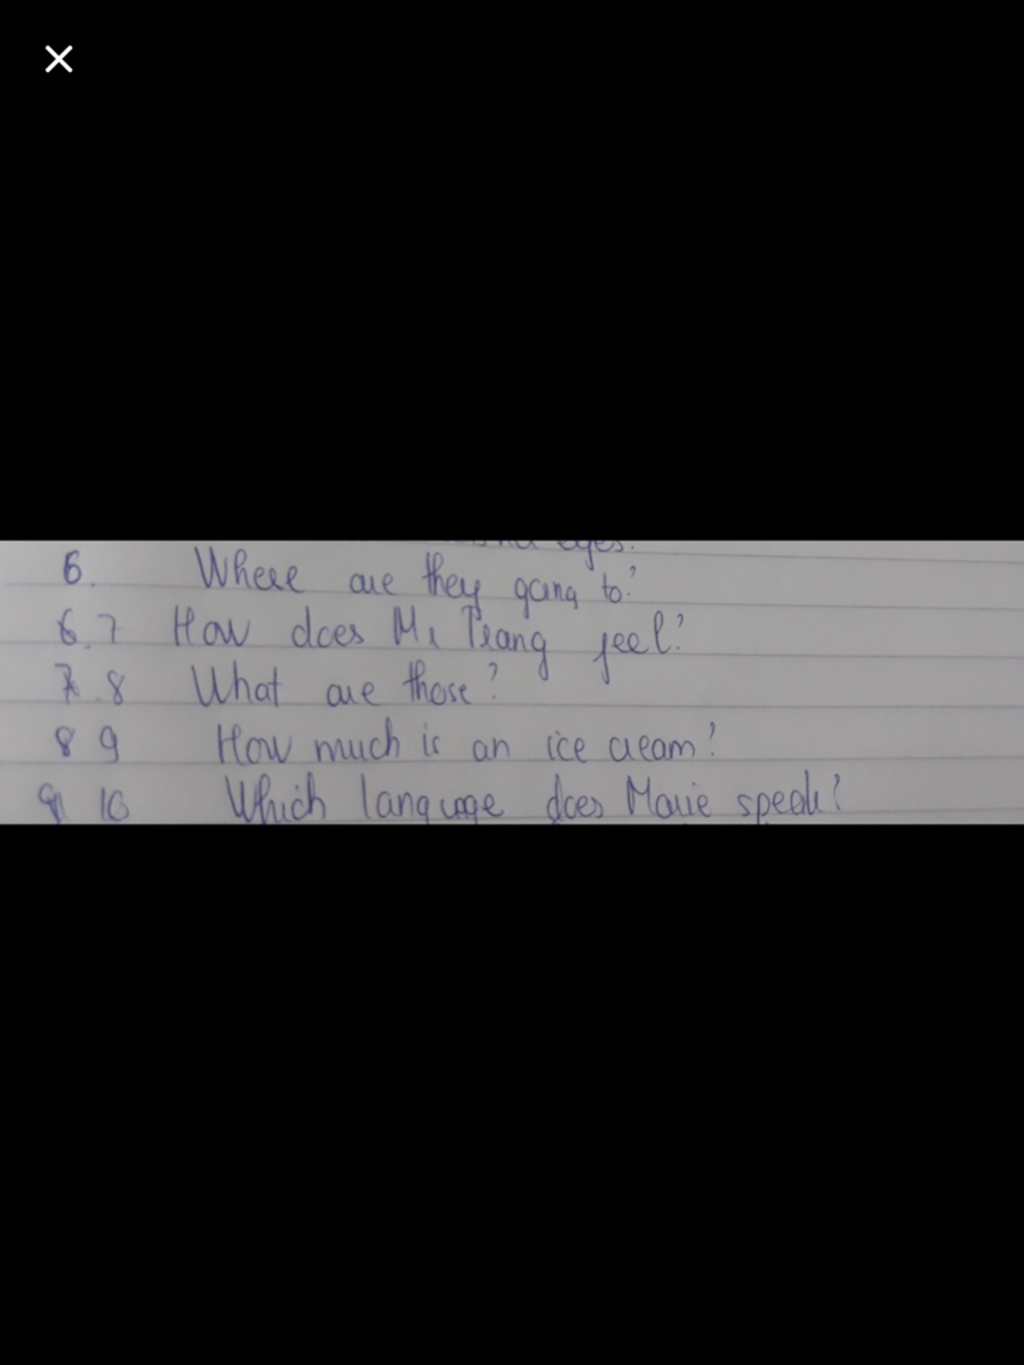 eyes.
6. Where are they going to?
6.7 How does Mr Trang feel?
7.8 What are those?
8 9 How much is an ice cream?
9 10 Which language does Marie speak?